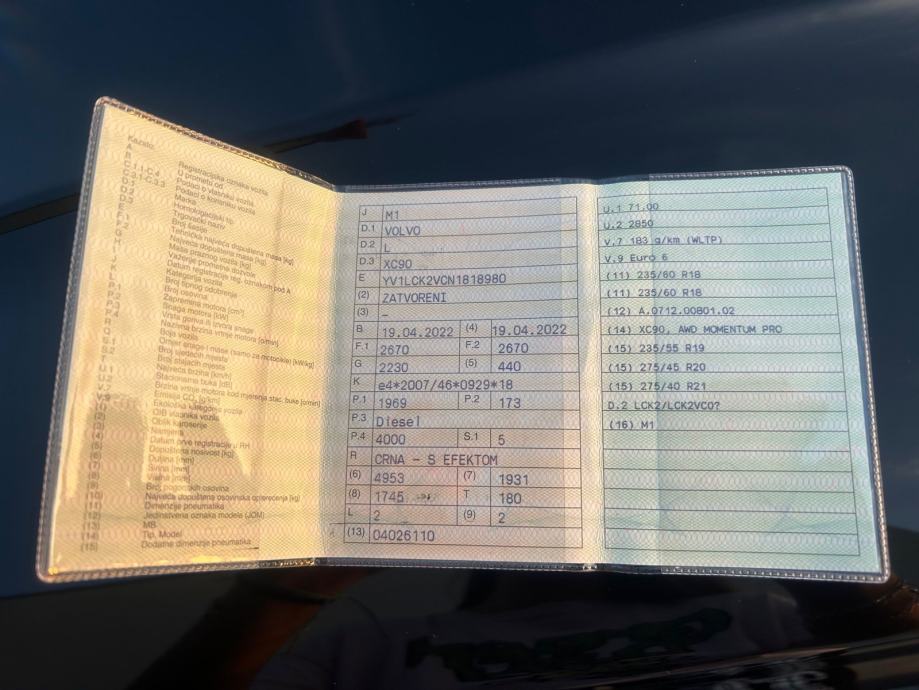 Kazalo:
A Registracijska oznaka vozila
B U prometu od
C.1.1-C.4 Podaci o vlasniku vozila
C.3.1-C.3.3 Podaci o korisniku vozila
D.1 Marka
D.2 Homologacijski tip
D.3 Trgovački naziv
E Broj šasije
F.1 Tehnička najveća dopuštena masa [kg]
F.2 Najveća dopuštena masa [kg]
G Masa praznog vozila [kg]
H Važenje prometne dozvole
I Datum registracije reg. oznakom pod A
J Kategorija vozila
K Broj tipnog odobrenja
L Broj osovina
P.1 Zapremina motora [cm³]
P.2 Snaga motora [kW]
P.3 Vrsta goriva ili izvora snage
P.4 Nazivna brzina vrtnje motora [o/min]
R Boja vozila
Q Omjer snage i mase (samo za motocikle) [kW/kg]
S.1 Broj sjedećih mjesta
S.2 Broj stajaćih mjesta
T Najveća brzina [km/h]
U.1 Stacionarna buka [dB]
U.2 Brzina vrtnje motora kod mjerenja stac. buke [o/min]
V.7 Emisija CO₂ [g/km]
V.9 Ekološka kategorija vozila
(1) OIB vlasnika vozila
(2) Oblik karoserije
(3) Namjena
(4) Datum prve registracije u RH
(5) Dopuštena nosivost [kg]
(6) Duljina [mm]
(7) Širina [mm]
(8) Visina [mm]
(9) Broj pogonskih osovina
(10) Najveća dopuštena osovinska opterećenja [kg]
(11) Dimenzije pneumatika
(12) Jedinstvena oznaka modela (JOM)
(13) MB
(14) Tip, Model
(15) Dodatne dimenzije pneumatika
J M1
D.1 VOLVO
D.2 L
D.3 XC90
E YV1LCK2VCN1818980
(2) ZATVORENI
(3) –
B 19.04.2022 (4) 19.04.2022
F.1 2670 F.2 2670
G 2230 (5) 440
K e4*2007/46*0929*18
P.1 1969 P.2 173
P.3 Diesel
P.4 4000 S.1 5
R CRNA – S EFEKTOM
(6) 4953 (7) 1931
(8) 1745 T 180
L 2 (9) 2
(13) 04026110
U.1 71.00
U.2 2850
V.7 183 g/km (WLTP)
V.9 Euro 6
(11) 235/60 R18
(11) 235/60 R18
(12) A.0712.00801.02
(14) XC90, AWD MOMENTUM PRO
(15) 235/55 R19
(15) 275/45 R20
(15) 275/40 R21
D.2 LCK2/LCK2VC0?
(16) M1